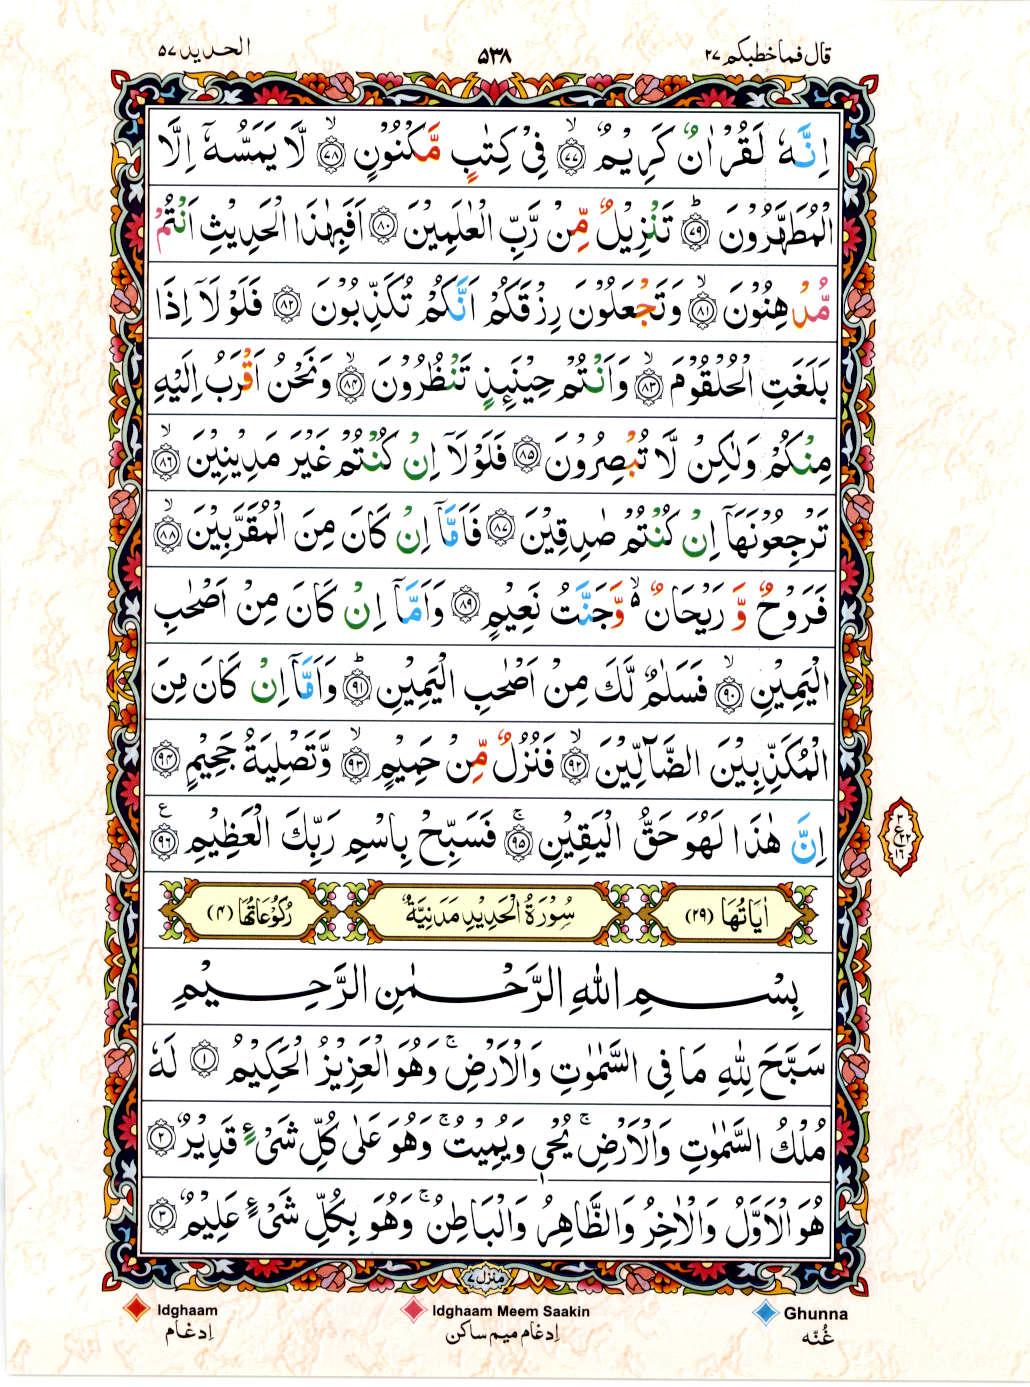 قال فما خطبكم ٢٧
٥٣٨
الحديد ٥٧
اِنَّهٗ لَقُرْاٰنٌ كَرِيْمٌ ۙ‏﴿٧٧﴾ فِيْ كِتٰبٍ مَّكْنُوْنٍ ۙ‏﴿٧٨﴾ لَّا يَمَسُّهٗۤ اِلَّا
الْمُطَهَّرُوْنَ ؕ‏﴿٧٩﴾ تَنْزِيْلٌ مِّنْ رَّبِّ الْعٰلَمِيْنَ ‏﴿٨٠﴾ اَفَبِهٰذَا الْحَدِيْثِ اَنْتُمْ
مُّدْهِنُوْنَ ۙ‏﴿٨١﴾ وَتَجْعَلُوْنَ رِزْقَكُمْ اَنَّكُمْ تُكَذِّبُوْنَ ‏﴿٨٢﴾ فَلَوْلَاۤ اِذَا
بَلَغَتِ الْحُلْقُوْمَ ۙ‏﴿٨٣﴾ وَاَنْتُمْ حِيْنَئِذٍ تَنْظُرُوْنَ ۙ‏﴿٨٤﴾ وَنَحْنُ اَقْرَبُ اِلَيْهِ
مِنْكُمْ وَلٰكِنْ لَّا تُبْصِرُوْنَ ‏﴿٨٥﴾ فَلَوْلَاۤ اِنْ كُنْتُمْ غَيْرَ مَدِيْنِيْنَ ۙ‏﴿٨٦﴾
تَرْجِعُوْنَهَاۤ اِنْ كُنْتُمْ صٰدِقِيْنَ ‏﴿٨٧﴾ فَاَمَّاۤ اِنْ كَانَ مِنَ الْمُقَرَّبِيْنَ ۙ‏﴿٨٨﴾
فَرَوْحٌ وَّ رَيْحَانٌ ۙ۬ وَّجَنَّتُ نَعِيْمٍ ‏﴿٨٩﴾ وَاَمَّاۤ اِنْ كَانَ مِنْ اَصْحٰبِ
الْيَمِيْنِ ۙ‏﴿٩٠﴾ فَسَلٰمٌ لَّكَ مِنْ اَصْحٰبِ الْيَمِيْنِ ؕ‏﴿٩١﴾ وَاَمَّاۤ اِنْ كَانَ مِنَ
الْمُكَذِّبِيْنَ الضَّآلِّيْنَ ۙ‏﴿٩٢﴾ فَنُزُلٌ مِّنْ حَمِيْمٍ ۙ‏﴿٩٣﴾ وَّتَصْلِيَةُ جَحِيْمٍ ‏﴿٩٤﴾
اِنَّ هٰذَا لَهُوَ حَقُّ الْيَقِيْنِ ۚ‏﴿٩٥﴾ فَسَبِّحْ بِاسْمِ رَبِّكَ الْعَظِيْمِ ‏﴿٩٦﴾ ع
٣
ع ٢٢
١٦
اٰيَاتُهَا (٢٩)
سُوْرَةُ الْحَدِيْدِ مَدَنِيَّةٌ
رُكُوْعَاتُهَا (٤)
بِسْمِ اللّٰهِ الرَّحْمٰنِ الرَّحِيْمِ
سَبَّحَ لِلّٰهِ مَا فِي السَّمٰوٰتِ وَالْاَرْضِ ۚ وَهُوَ الْعَزِيْزُ الْحَكِيْمُ ‏﴿١﴾ لَهٗ
مُلْكُ السَّمٰوٰتِ وَالْاَرْضِ ۚ يُحْيٖ وَيُمِيْتُ ۚ وَهُوَ عَلٰى كُلِّ شَيْءٍ قَدِيْرٌ ‏﴿٢﴾
هُوَ الْاَوَّلُ وَالْاٰخِرُ وَالظَّاهِرُ وَالْبَاطِنُ ۚ وَهُوَ بِكُلِّ شَيْءٍ عَلِيْمٌ ‏﴿٣﴾
منزل ٧
Ghunna
غُنّه
Idghaam Meem Saakin
اِدغام میم ساکن
Idghaam
اِدغام